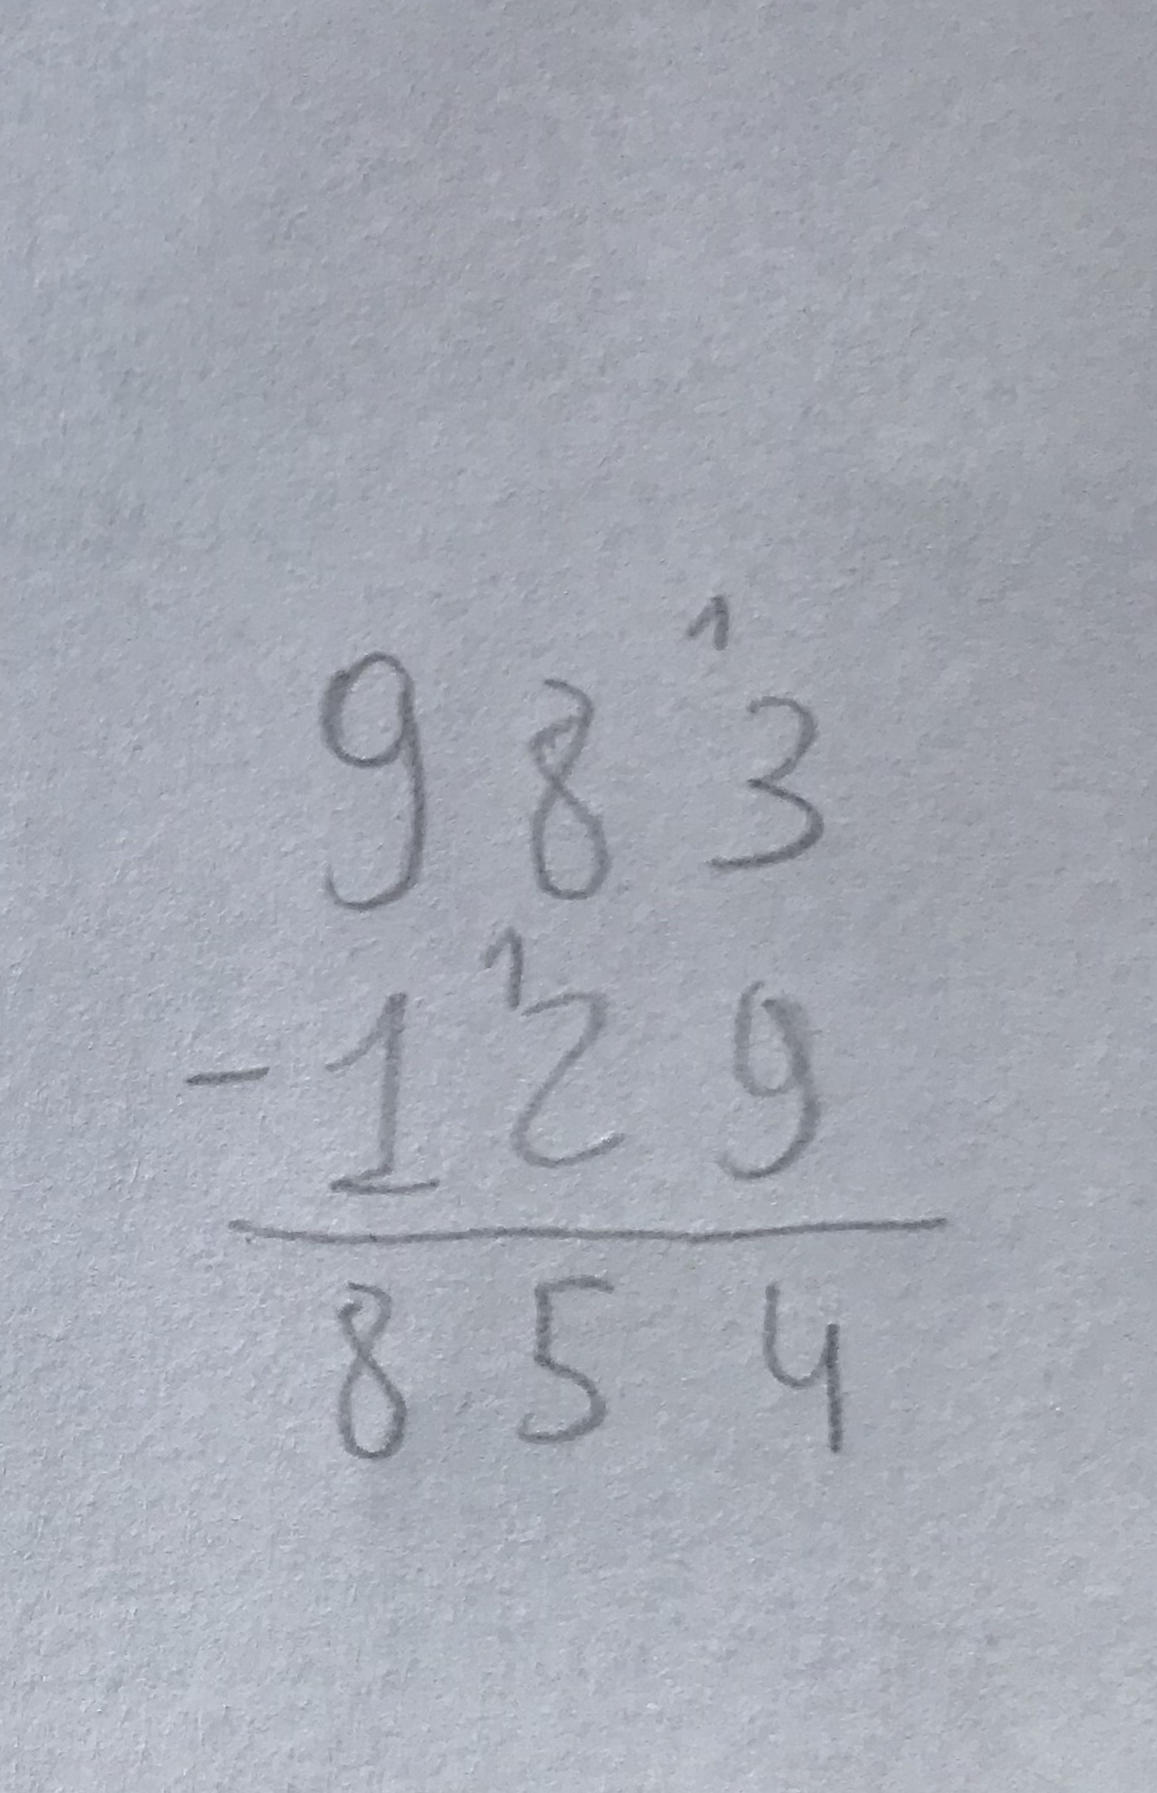 1
9 8 3
1
- 1 2 9
8 5 4